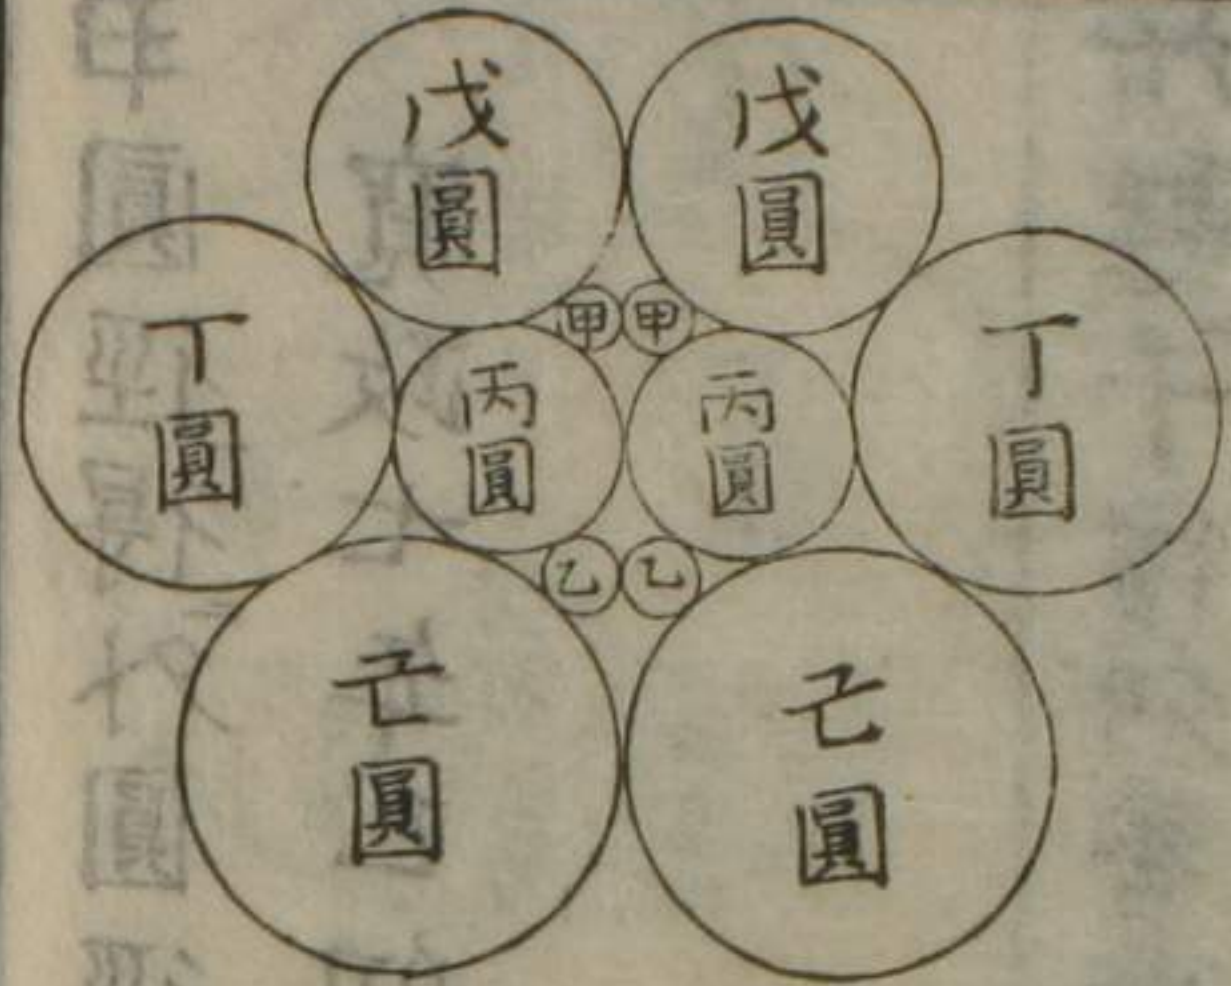 戊圓
戊圓
丁圓
甲
甲
丁圓
丙圓
丙圓
乙
乙
己圓
己圓